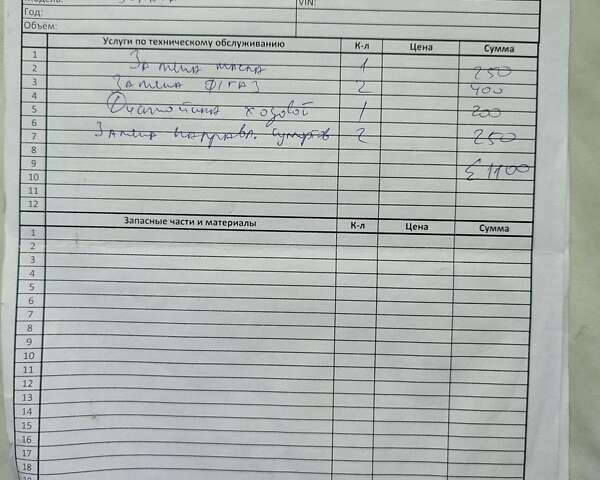 Модель:
VIN:
Год:
Объём:
Услуги по техническому обслуживанию К-л Цена Сумма
1 Замена масла 1 250
2
3 Замена Ф/ГАЗ 2 400
4
5 Диагностика ходовой 1 200
6
7 Замена направл. суппортов 2 250
8
9 Σ 1100
10
11
12
Запасные части и материалы К-л Цена Сумма
1
2
3
4
5
6
7
8
9
10
11
12
13
14
15
16
17
18
19